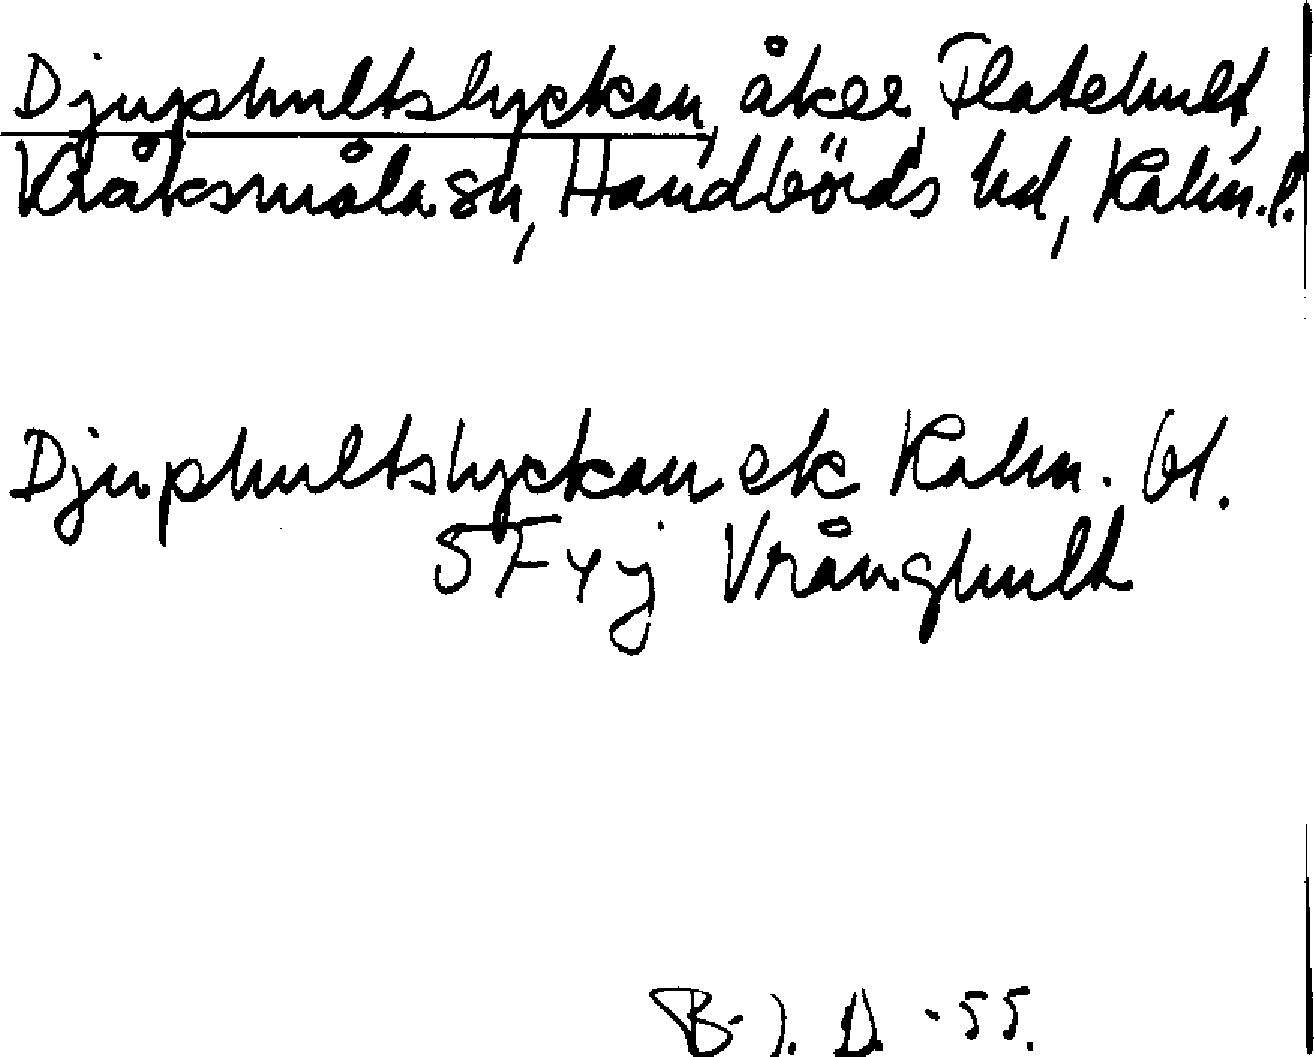 Djuphultslyckan, åker Flatehult,
Kråksmåla sn, Handbörds hd, Kalm. l.
Djuphultslyckan ek Kalm. bl.
5 F y j Vrånghult
B. J. D. -55.